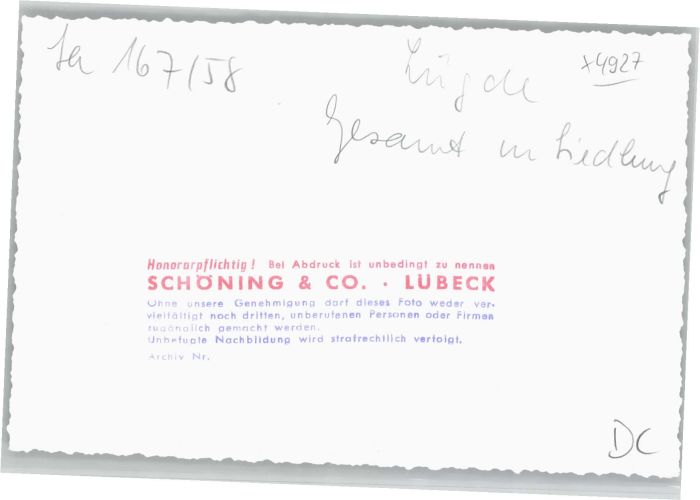 Sa 167/58
Lügde
x4927
Gesamt m Siedlung
Honorarpflichtig! Bei Abdruck ist unbedingt zu nennen
SCHÖNING & CO. · LÜBECK
Ohne unsere Genehmigung darf dieses Foto weder ver-
vielfältigt noch dritten, unberufenen Personen oder Firmen
zugänglich gemacht werden.
Unbefugte Nachbildung wird strafrechtlich verfolgt.
Archiv Nr.
DC